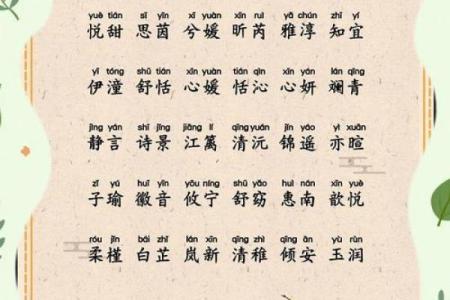 yuè tián sī yīn xī yuàn xīn ruì yǎ chún zhī yí
悦甜 思茵 兮媛 昕芮 雅淳 知宜
yī tóng shū tián xīn yuàn tián qìn xīn yán lán qīng
伊潼 舒恬 心媛 恬沁 心妍 斓青
jìng yán shī jǐng jiāng lí qīng yuán jǐn yáo yì xuān
静言 诗景 江篱 清沅 锦遥 亦暄
zǐ yú huī yīn yōu níng shū yǎo huì nán xīn yuè
子瑜 徽音 攸宁 舒窈 惠南 歆悦
róu jǐn bái zhǐ lán xīn qīng zhì qīng ān yù rùn
柔槿 白芷 岚新 清稚 倾安 玉润